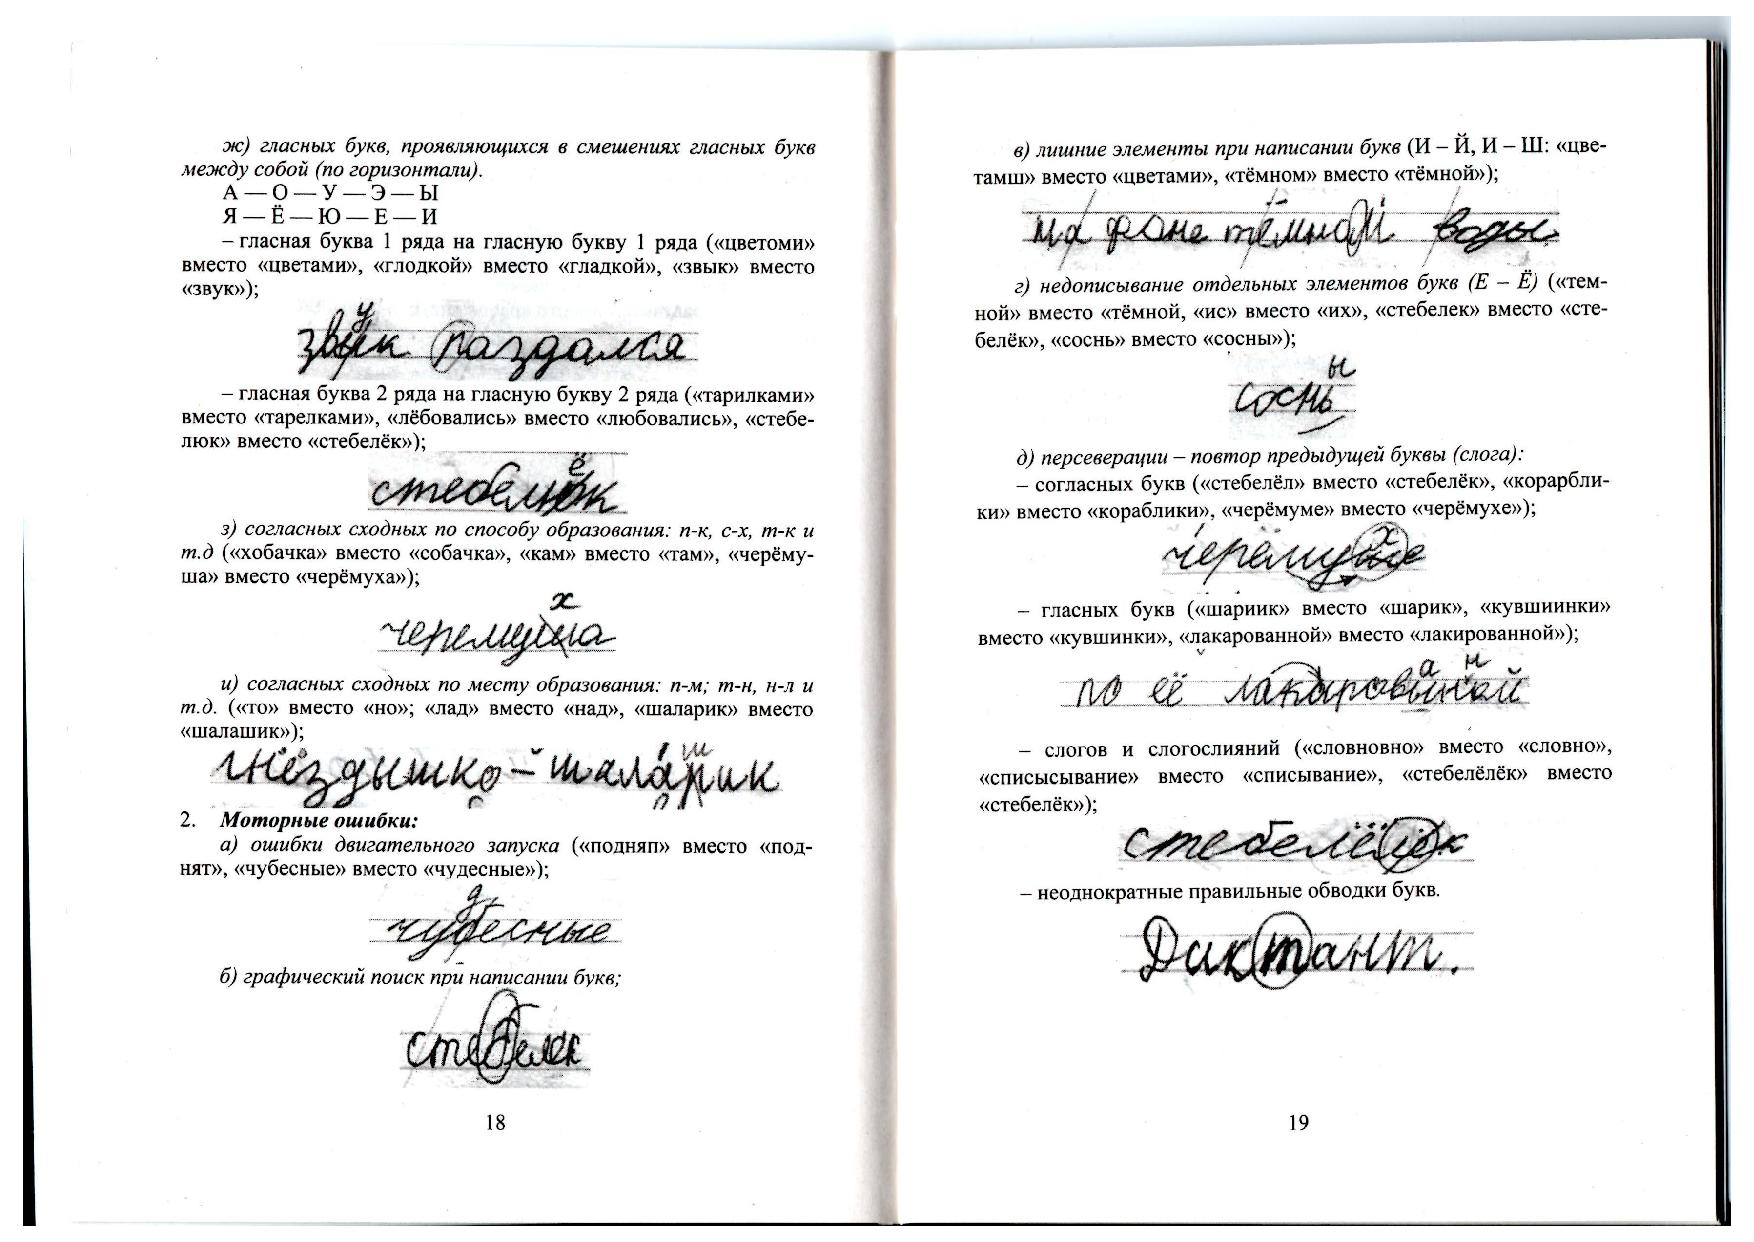 ж) гласных букв, проявляющихся в смешениях гласных букв
между собой (по горизонтали).
А — О — У — Э — Ы
Я — Ё — Ю — Е — И
– гласная буква 1 ряда на гласную букву 1 ряда («цветоми»
вместо «цветами», «глодкой» вместо «гладкой», «звык» вместо
«звук»);
у
звык раздался
– гласная буква 2 ряда на гласную букву 2 ряда («тарилками»
вместо «тарелками», «лёбовались» вместо «любовались», «стебе-
люк» вместо «стебелёк»);
ё
стебелюк
з) согласных сходных по способу образования: п-к, с-х, т-к и
т.д («хобачка» вместо «собачка», «кам» вместо «там», «черёму-
ша» вместо «черёмуха»);
х
черемуша
и) согласных сходных по месту образования: п-м; т-н, н-л и
т.д. («то» вместо «но»; «лад» вместо «над», «шаларик» вместо
«шалашик»);
ш
гнёздышко – шаларик
2. Моторные ошибки:
а) ошибки двигательного запуска («подняп» вместо «под-
нят», «чубесные» вместо «чудесные»);
д
чубесные
б) графический поиск при написании букв;
стебелек
18
в) лишние элементы при написании букв (И – Й, И – Ш: «цве-
тамш» вместо «цветами», «тёмном» вместо «тёмной»);
на фоне тёмной воды
г) недописывание отдельных элементов букв (Е – Ё) («тем-
ной» вместо «тёмной, «ис» вместо «их», «стебелек» вместо «сте-
белёк», «соснь» вместо «сосны»);
ы
соснь
д) персеверации – повтор предыдущей буквы (слога):
– согласных букв («стебелёл» вместо «стебелёк», «корарбли-
ки» вместо «кораблики», «черёмуме» вместо «черёмухе»);
х
черёмуме
– гласных букв («шариик» вместо «шарик», «кувшиинки»
вместо «кувшинки», «лакарованной» вместо «лакированной»);
а н
по её лакировиной
– слогов и слогослияний («словновно» вместо «словно»,
«списысывание» вместо «списывание», «стебелёлёк» вместо
«стебелёк»);
стебелёлёк
– неоднократные правильные обводки букв.
Диктант.
19